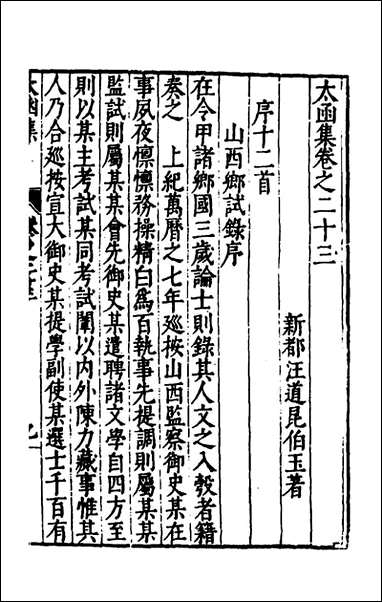 太函集卷之二十三
新都汪道昆伯玉著
序十二首
山西鄉試錄序
在令甲諸鄉國三歲論士則錄其人文之入彀者籍
奏之 上紀萬曆之七年廵按山西監察御史某在
事夙夜懔懔務操精白為百執事先提調則屬某某
監試則屬某某會先御史某遣聘諸文學自四方至
則以某主考試某同考試闈以内外陳力蕆事惟其
人乃合廵按宣大御史某提學副使某選士千百有
太函集